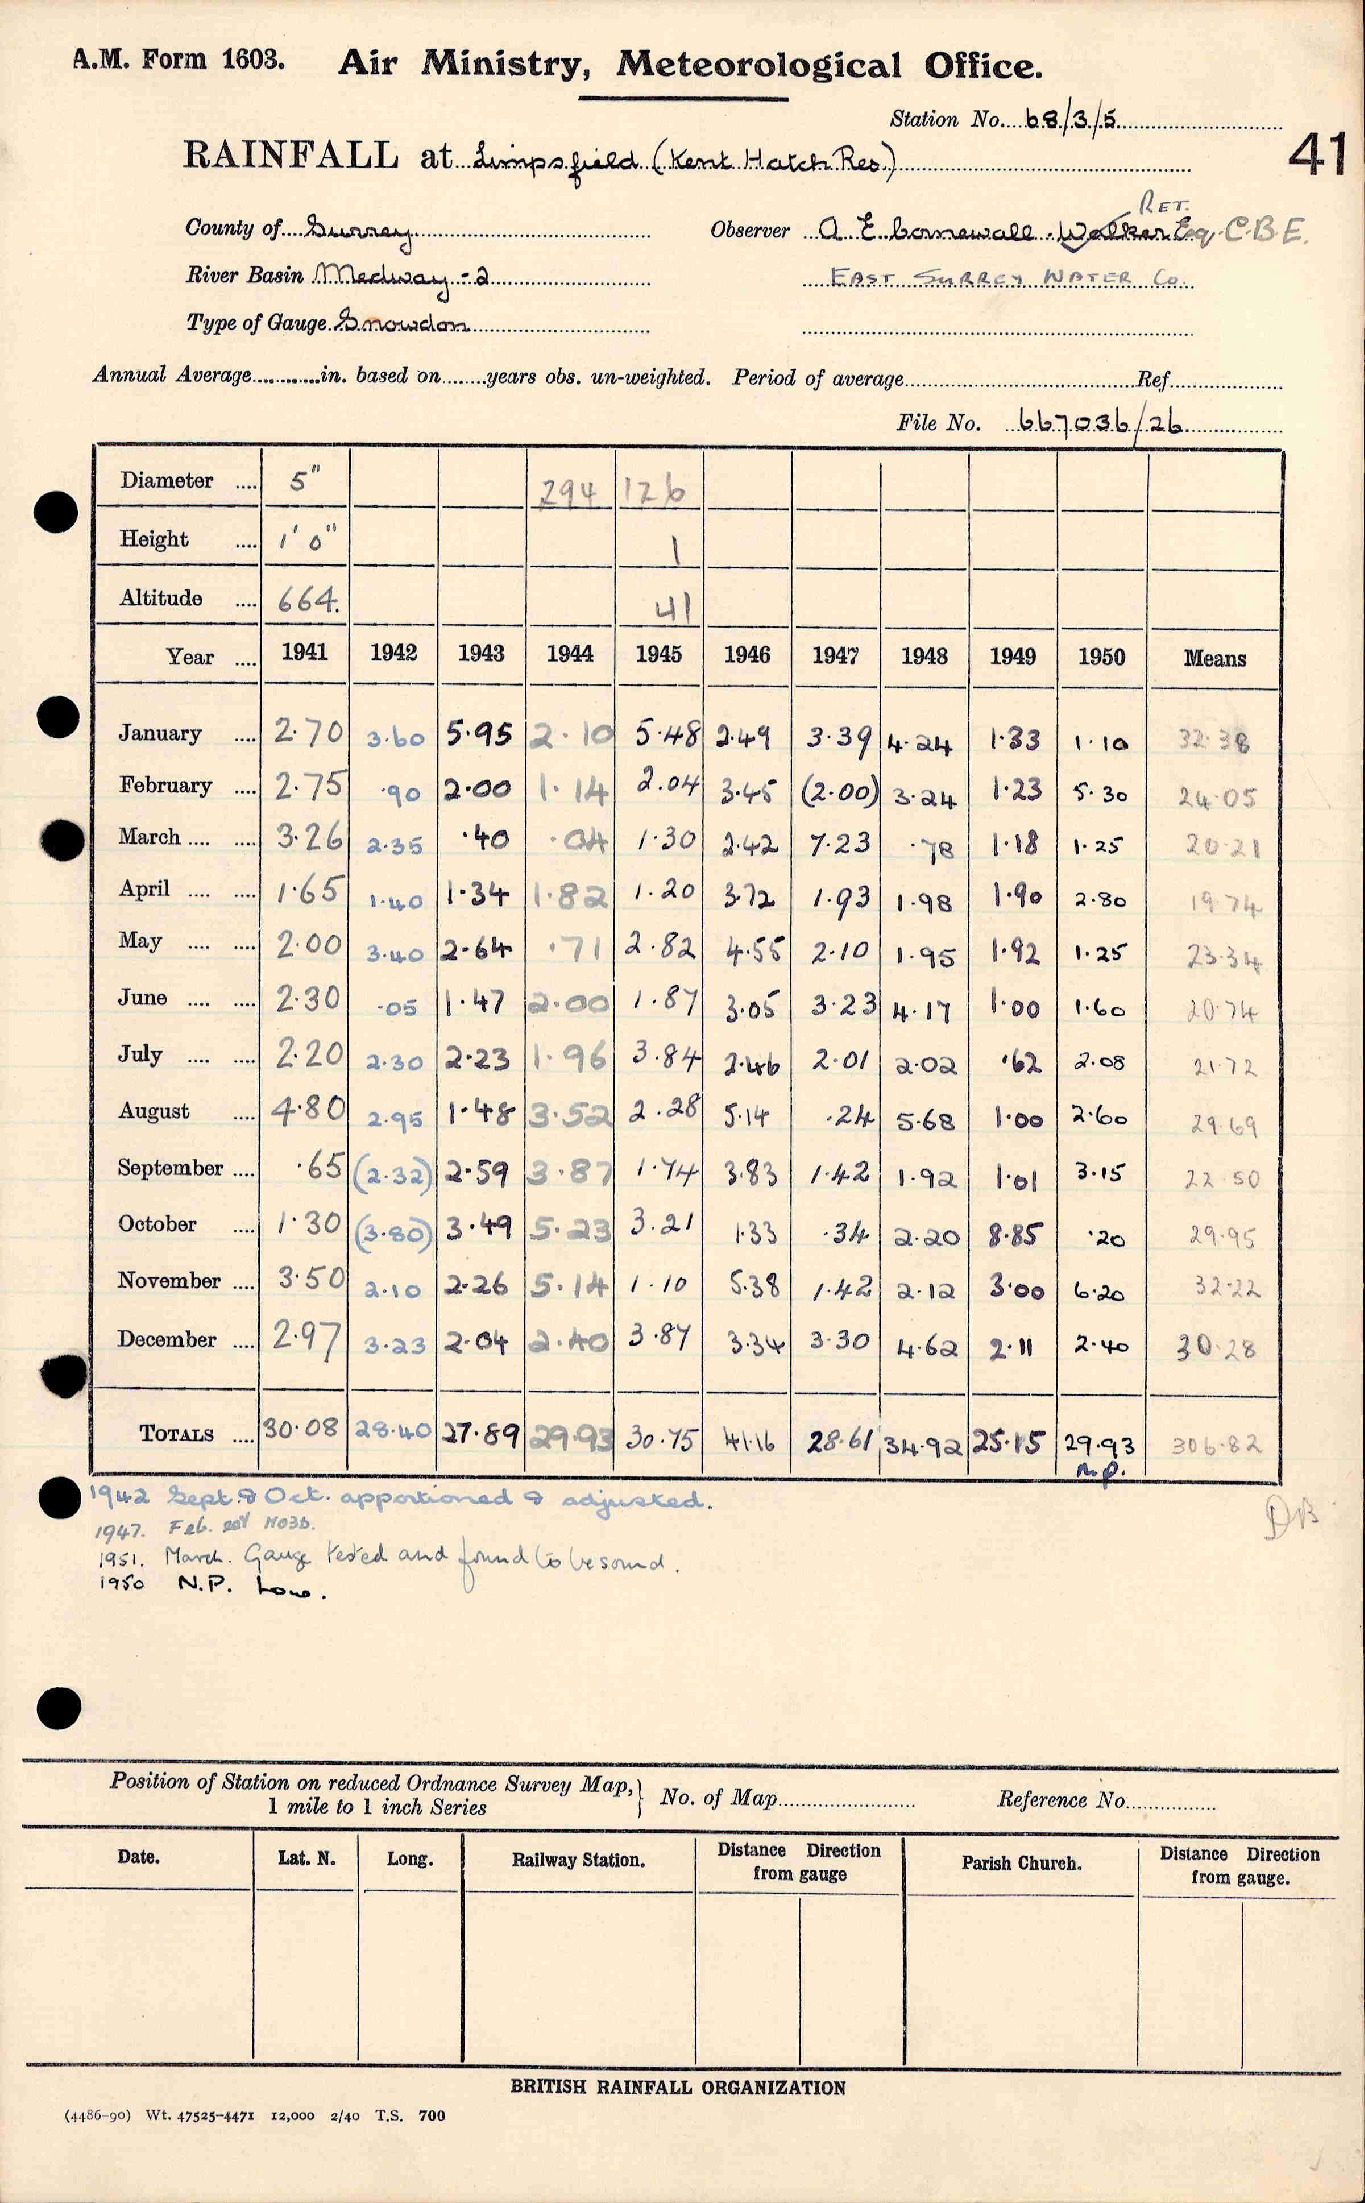 A.M. Form 1603. Air Ministry, Meteorological Office.
Station No. 68/3/5
41
RAINFALL at Limpsfield (Kent Hatch Res)
RET.
County of Surrey Observer A E Cornewall-Walker Esq. C.B.E.
River Basin Medway - 2 EAST SURREY WATER Co.
Type of Gauge Snowdon
Annual Average in. based on years obs. un-weighted. Period of average Ref
File No. 667036/26
Diameter 5" 294 126
Height 1' 0" 1
Altitude 664. 41
Year 1941 1942 1943 1944 1945 1946 1947 1948 1949 1950 Means
January 2.70 3.60 5.95 2.10 5.48 2.49 3.39 4.24 1.33 1.10 32.38
February 2.75 .90 2.00 1.14 2.04 3.45 (2.00) 3.24 1.23 5.30 24.05
March 3.26 2.35 .40 .04 1.30 2.42 7.23 .78 1.18 1.25 20.21
April 1.65 1.40 1.34 1.82 1.20 3.72 1.93 1.98 1.90 2.80 19.74
May 2.00 3.40 2.64 .71 2.82 4.55 2.10 1.95 1.92 1.25 23.34
June 2.30 .05 1.47 2.00 1.87 3.05 3.23 4.17 1.00 1.60 20.74
July 2.20 2.30 2.23 1.96 3.84 2.46 2.01 2.02 .62 2.08 21.72
August 4.80 2.95 1.48 3.52 2.28 5.14 .24 5.68 1.00 2.60 29.69
September .65 (2.32) 2.59 3.87 1.74 3.83 1.42 1.92 1.01 3.15 22.50
October 1.30 (3.80) 3.49 5.23 3.21 1.33 .34 2.20 8.85 .20 29.95
November 3.50 2.10 2.26 5.14 1.10 5.38 1.42 2.12 3.00 6.20 32.22
December 2.97 3.23 2.04 2.40 3.87 3.34 3.30 4.62 2.11 2.40 30.28
TOTALS 30.08 28.40 27.89 29.93 30.75 41.16 28.61 34.92 25.15 29.93 306.82
n.p.
1942 Sept. & Oct. apportioned & adjusted.
DB
1947. Feb. est M03b.
1951. March. Gauge tested and found to be sound.
1950 N.P. Low.
Position of Station on reduced Ordnance Survey Map, 1 mile to 1 inch Series } No. of Map Reference No.
Date. Lat. N. Long. Railway Station. Distance Direction from gauge Parish Church. Distance Direction from gauge.
BRITISH RAINFALL ORGANIZATION
(4486-90) Wt. 47525-4471 12,000 2/40 T.S. 700